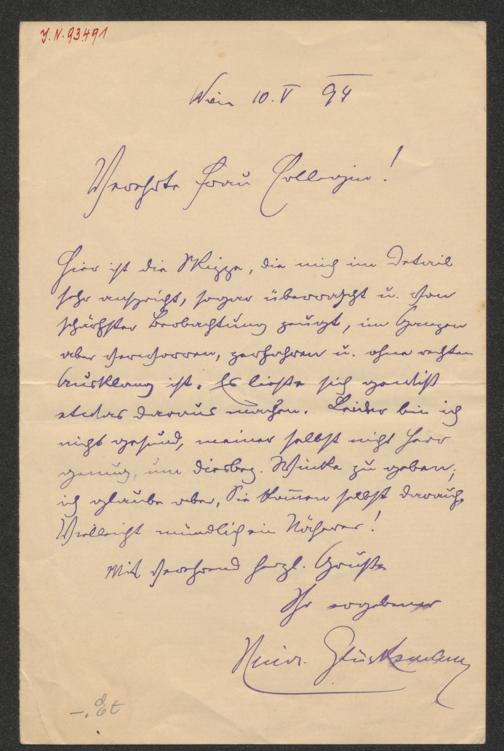 J. N. 93491
Wien 10. V 94
Verehrte Frau Collegin!
Hier ist die Skizze, die mich im Detail
sehr anspricht, sogar überrascht u. von
schärfster Beobachtung zeugt, im Ganzen
aber verworren, zerfahren u. ohne rechten
Ausklang ist. Es ließe sich gewiß
etwas daraus machen. Leider bin ich
nicht gesund, meiner selbst nicht Herr
genug, um diesbez. Winke zu geben;
ich glaube aber, Sie kommen selbst darauf.
Vielleicht mündlich ein Näheres!
Mit verehrend herzl. Gruße
Ihr ergebener
Heinr. Glücksmann